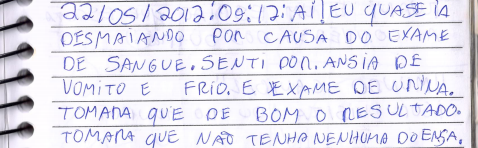 22/05/2012:09:12:AI! EU QUASE IA
DESMAIANDO POR CAUSA DO EXAME
DE SANGUE. SENTI DOR. ANSIA DE
VOMITO E FRIO. E EXAME DE URINA.
TOMARA QUE DE BOM O RESULTADO.
TOMARA QUE NAO TENHA NENHUMA DOENSA.